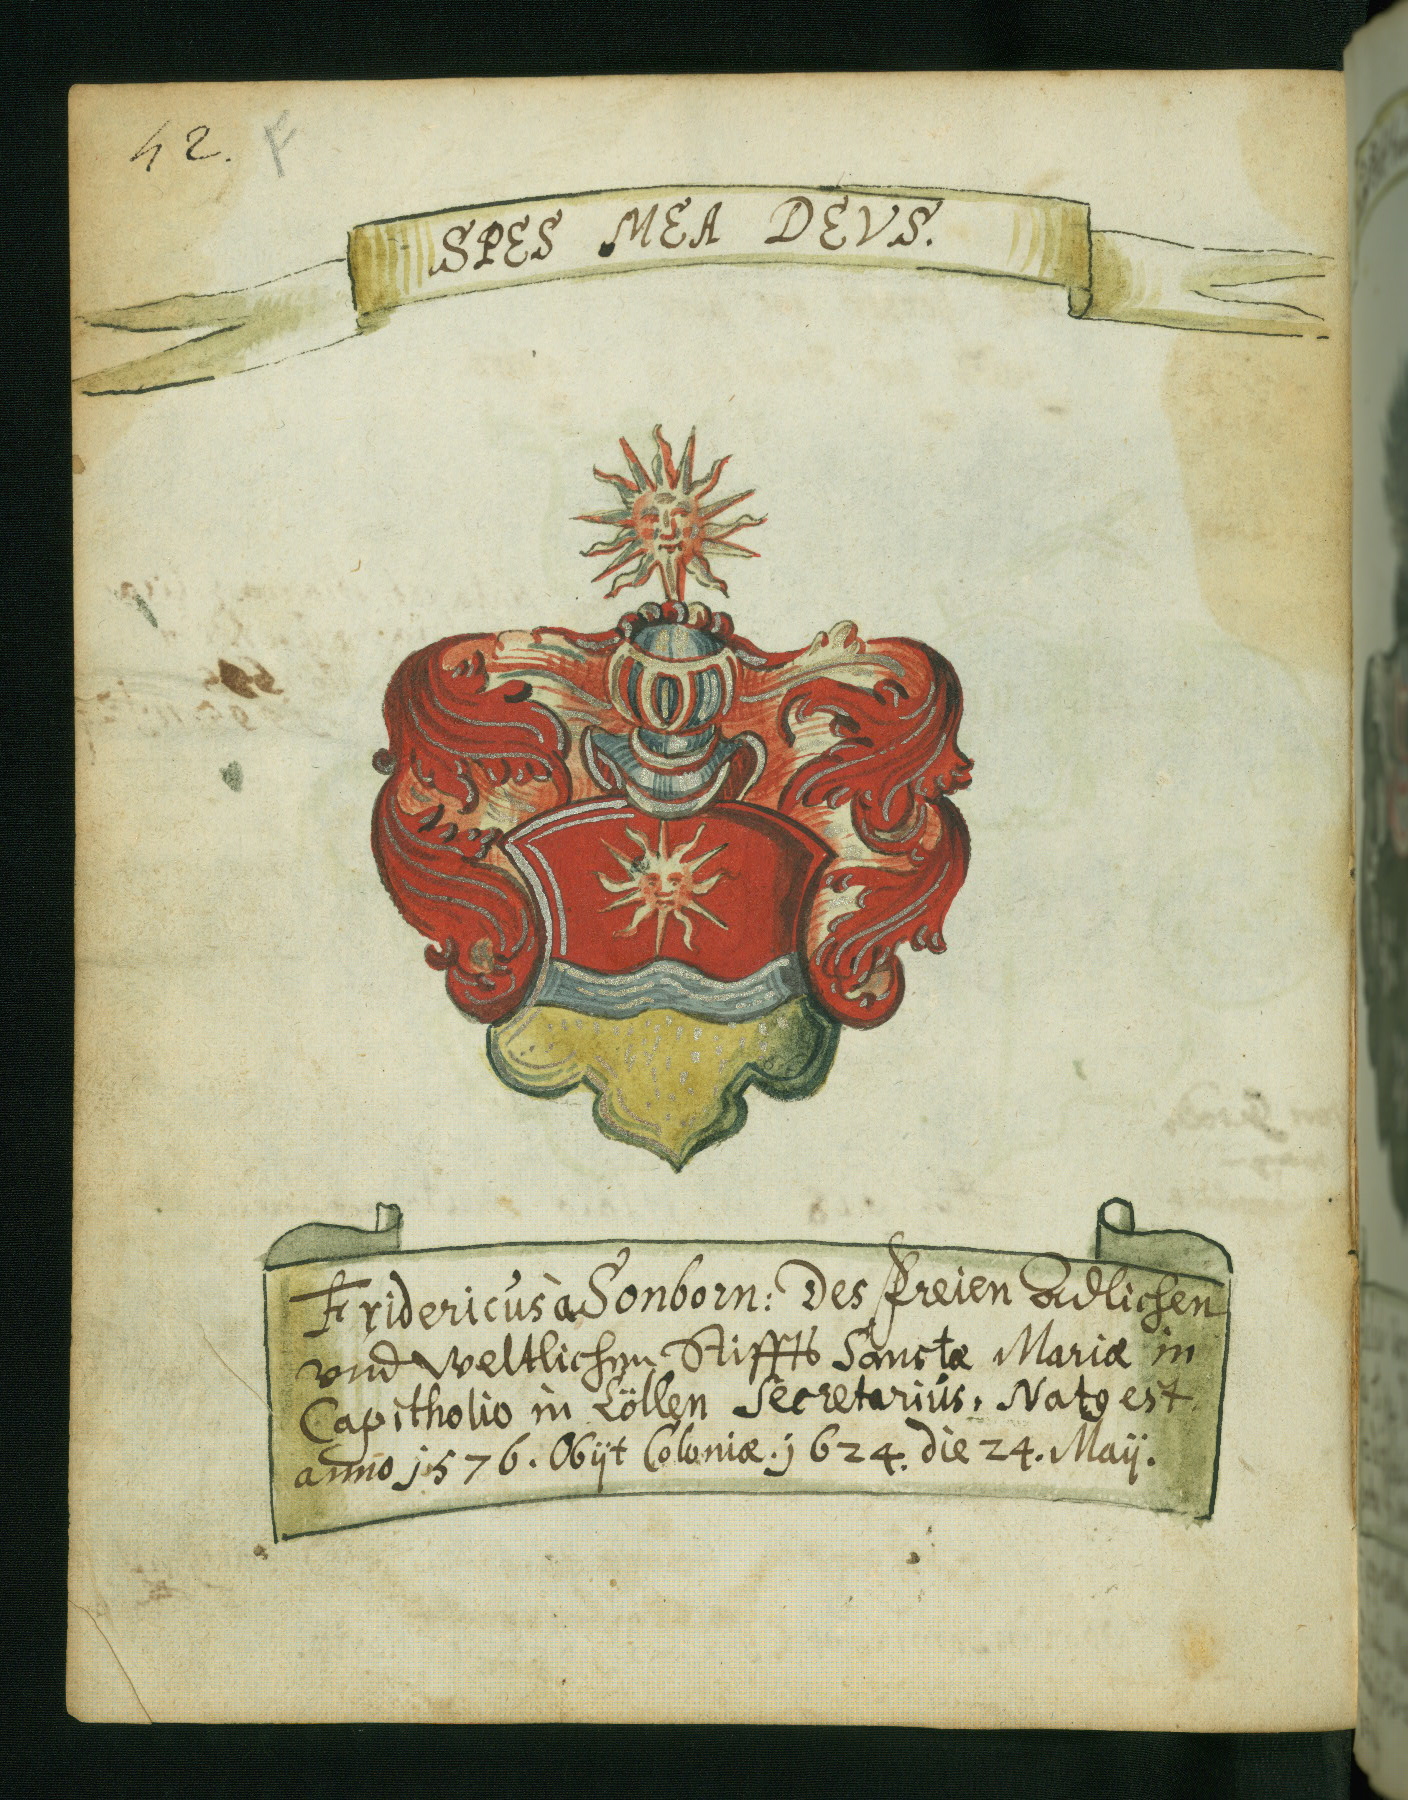 42. F
SPES MEA DEVS.
Fridericus à Sonborn: Des freien Adlichen
vnd weltlichen Stiffts Sanctæ Mariæ in
Capitholio in Cöllen Secretariús, Natꝰ est
anno j576. Obijt Coloniæ. j624. die 24. Maij.